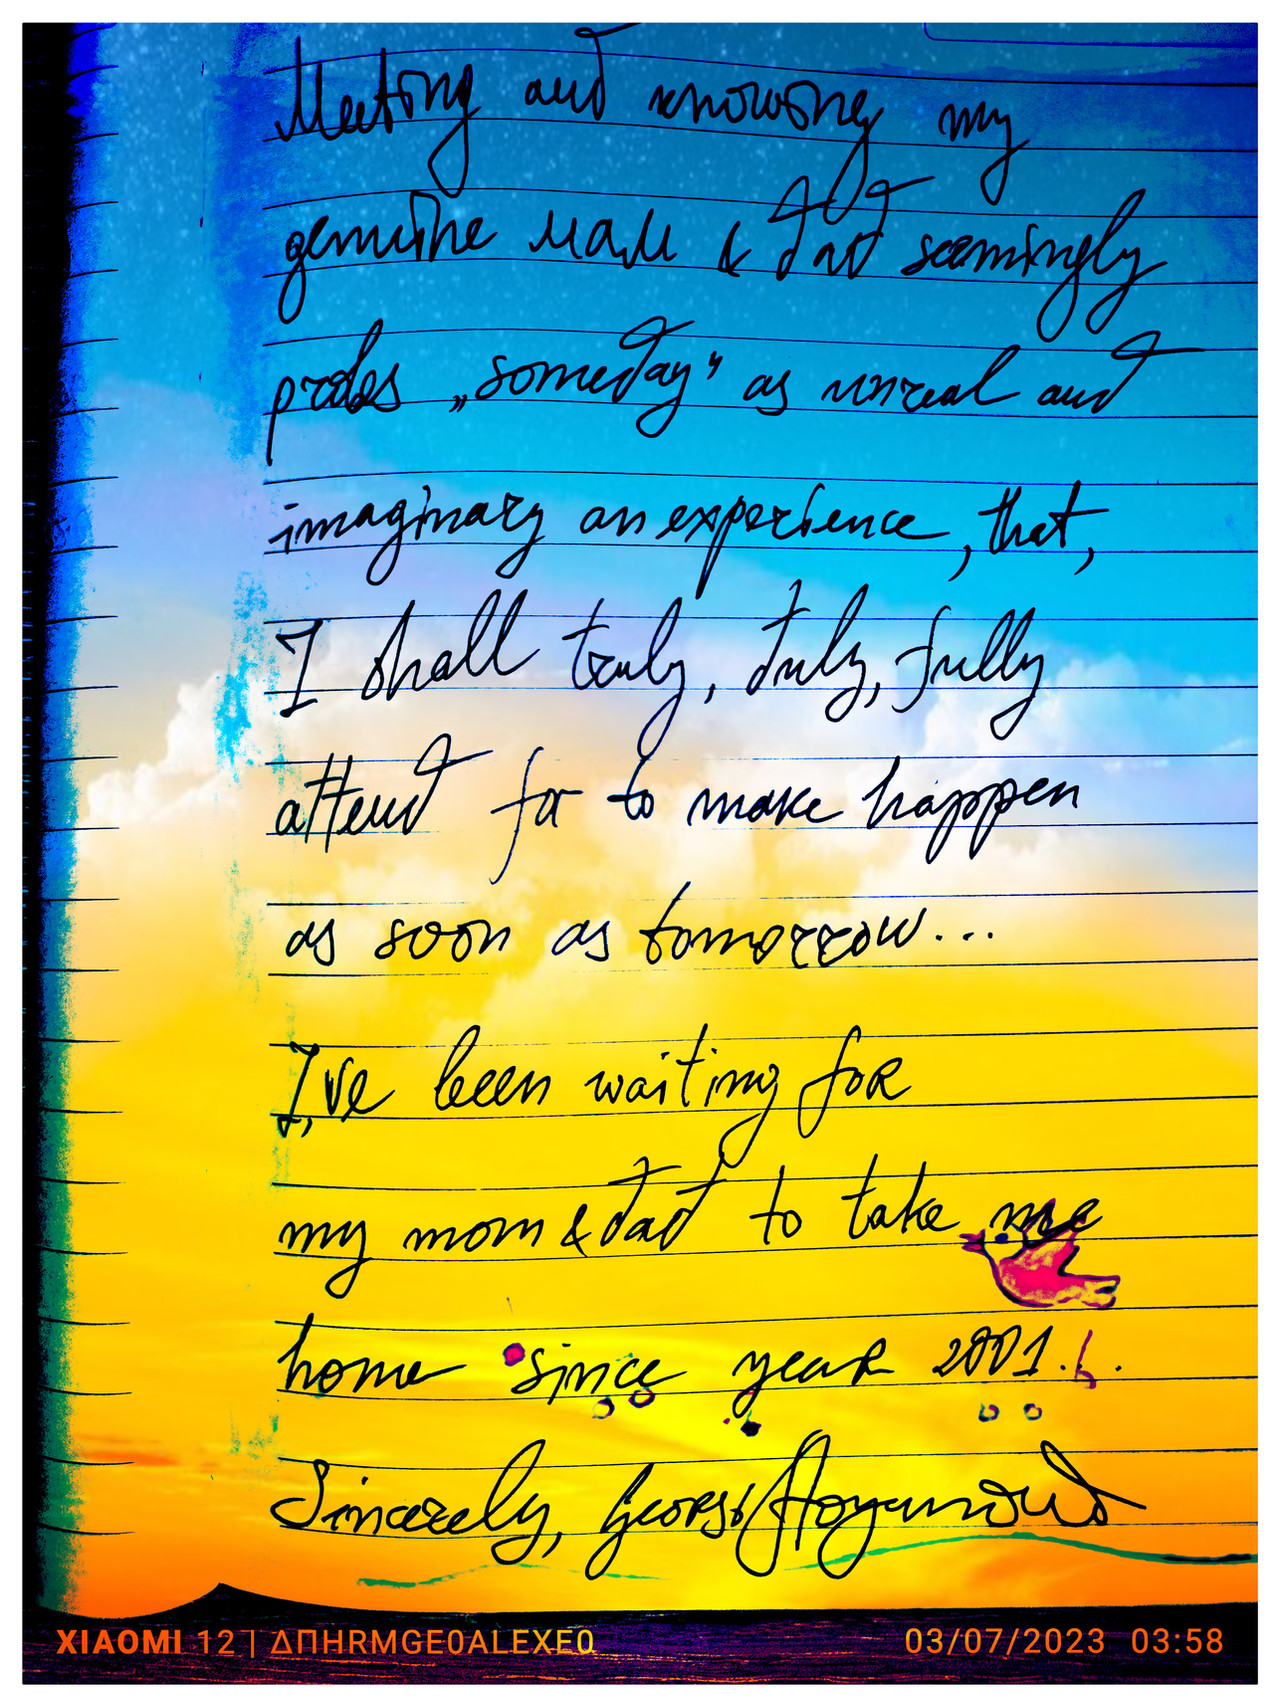 Meeting and knowing my
genuine mam & dad seemingly
probes „someday" as unreal and
imaginary an experience, that,
I shall truly, duly, fully
attend for to make happen
as soon as tomorrow...
I've been waiting for
my mom & dad to take me
home since year 2001...
Sincerely, George
XIAOMI 12 | ΔΠHRMGE0ALEXE0
03/07/2023 03:58